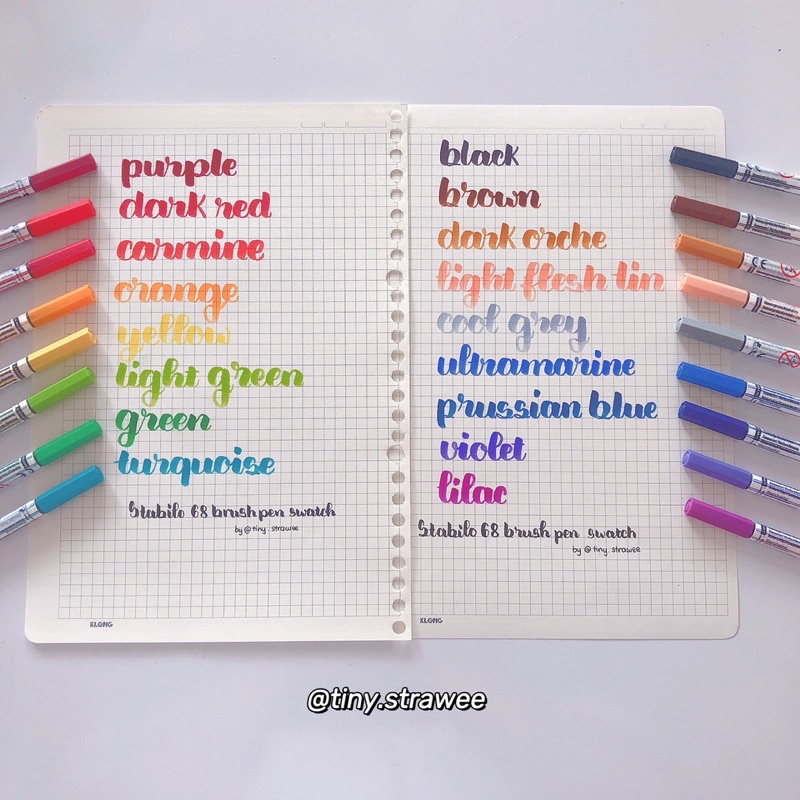 purple
dark red
carmine
orange
yellow
light green
green
turquoise
Stabilo 68 brush pen swatch
by @tiny.strawee
KLONG
black
brown
dark orche
light flesh tin
cool grey
ultramarine
prussian blue
violet
lilac
Stabilo 68 brush pen swatch
by @tiny.strawee
KLONG
@tiny.strawee